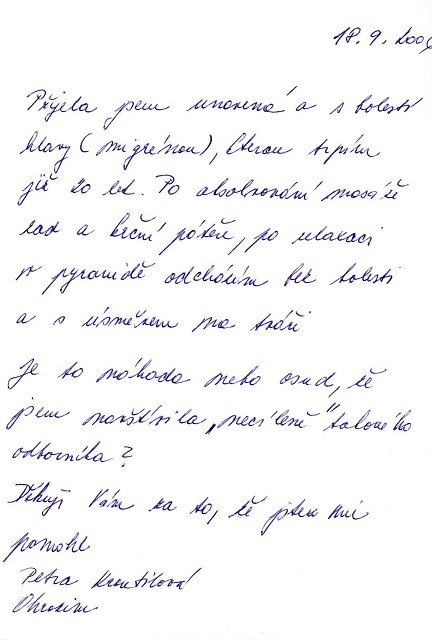 18. 9. 200
Přijela jsem unavená a s bolestí
hlavy (migrénou), kterou trpím
již 20 let. Po absolvování masáže
zad a krční páteře, po relaxaci
v pyramidě odcházím bez bolesti
a s úsměvem na tváři
Je to náhoda nebo osud, že
jsem navštívila „necíleně" takového
odborníka?
Děkuji Vám za to, že jste mi
pomohl
Petra